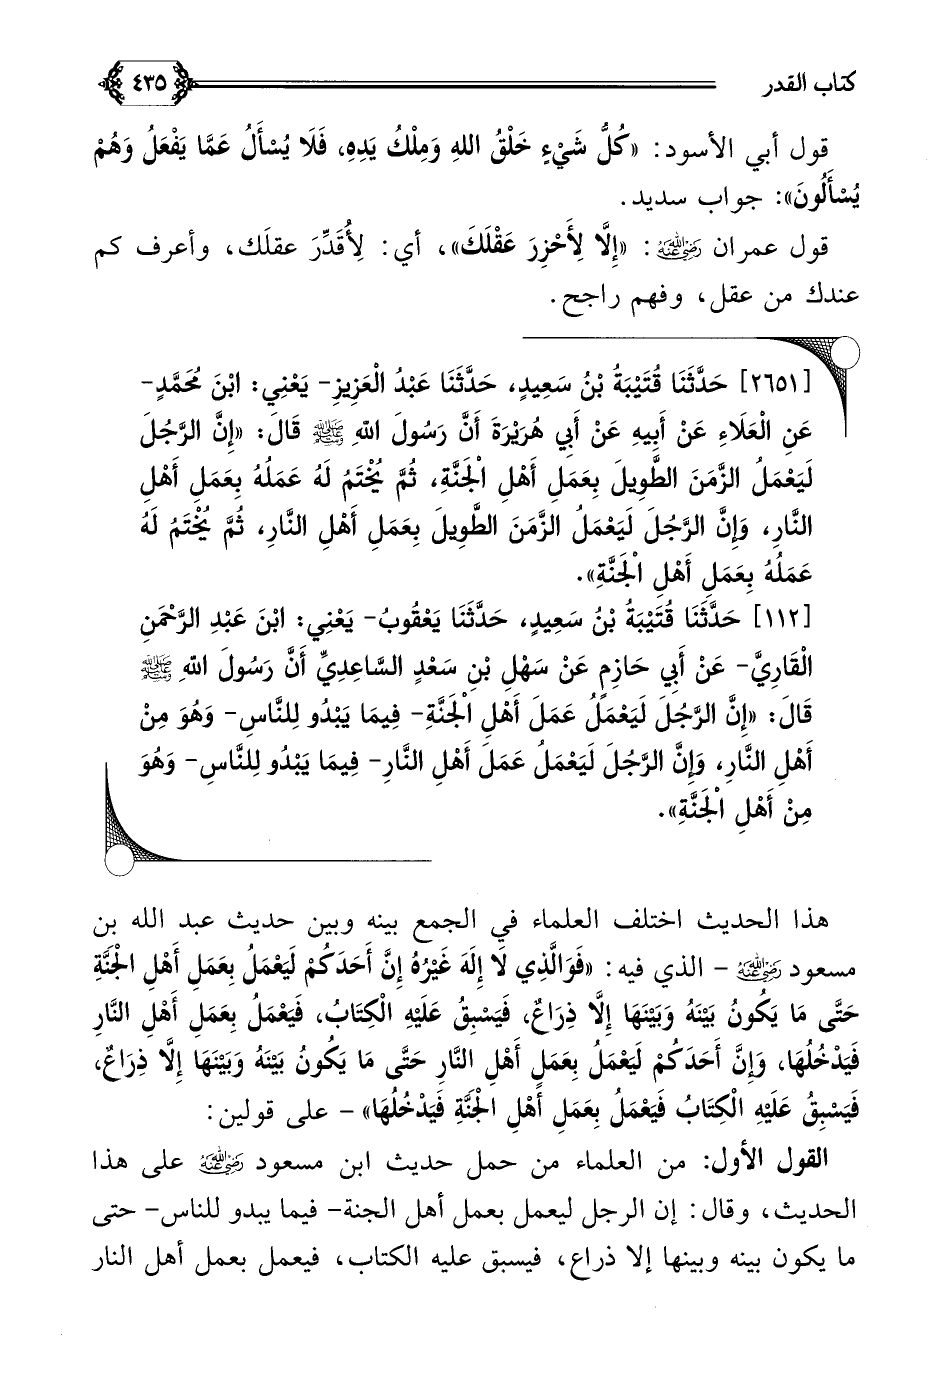 كتاب القدر ٤٣٥
قول أبي الأسود: «كُلُّ شَيْءٍ خَلْقُ اللهِ وَمِلْكُ يَدِهِ، فَلَا يُسْأَلُ عَمَّا يَفْعَلُ وَهُمْ
يُسْأَلُونَ»: جواب سديد.
قول عمران رضي الله عنه: «إِلَّا لِأَحْزِرَ عَقْلَكَ»، أي: لِأُقَدِّرَ عقلَك، وأعرف كم
عندك من عقل، وفهم راجح.
[٢٦٥١] حَدَّثَنَا قُتَيْبَةُ بْنُ سَعِيدٍ، حَدَّثَنَا عَبْدُ الْعَزِيزِ- يَعْنِي: ابْنَ مُحَمَّدٍ-
عَنِ الْعَلَاءِ عَنْ أَبِيهِ عَنْ أَبِي هُرَيْرَةَ أَنَّ رَسُولَ اللهِ ﷺ قَالَ: «إِنَّ الرَّجُلَ
لَيَعْمَلُ الزَّمَنَ الطَّوِيلَ بِعَمَلِ أَهْلِ الْجَنَّةِ، ثُمَّ يُخْتَمُ لَهُ عَمَلُهُ بِعَمَلِ أَهْلِ
النَّارِ، وَإِنَّ الرَّجُلَ لَيَعْمَلُ الزَّمَنَ الطَّوِيلَ بِعَمَلِ أَهْلِ النَّارِ، ثُمَّ يُخْتَمُ لَهُ
عَمَلُهُ بِعَمَلِ أَهْلِ الْجَنَّةِ».
[١١٢] حَدَّثَنَا قُتَيْبَةُ بْنُ سَعِيدٍ، حَدَّثَنَا يَعْقُوبُ- يَعْنِي: ابْنَ عَبْدِ الرَّحْمَنِ
الْقَارِيَّ- عَنْ أَبِي حَازِمٍ عَنْ سَهْلِ بْنِ سَعْدٍ السَّاعِدِيِّ أَنَّ رَسُولَ اللهِ ﷺ
قَالَ: «إِنَّ الرَّجُلَ لَيَعْمَلُ عَمَلَ أَهْلِ الْجَنَّةِ- فِيمَا يَبْدُو لِلنَّاسِ- وَهُوَ مِنْ
أَهْلِ النَّارِ، وَإِنَّ الرَّجُلَ لَيَعْمَلُ عَمَلَ أَهْلِ النَّارِ- فِيمَا يَبْدُو لِلنَّاسِ- وَهُوَ
مِنْ أَهْلِ الْجَنَّةِ».
هذا الحديث اختلف العلماء في الجمع بينه وبين حديث عبد الله بن
مسعود رضي الله عنه - الذي فيه: «فَوَالَّذِي لَا إِلَهَ غَيْرُهُ إِنَّ أَحَدَكُمْ لَيَعْمَلُ بِعَمَلِ أَهْلِ الْجَنَّةِ
حَتَّى مَا يَكُونُ بَيْنَهُ وَبَيْنَهَا إِلَّا ذِرَاعٌ، فَيَسْبِقُ عَلَيْهِ الْكِتَابُ، فَيَعْمَلُ بِعَمَلِ أَهْلِ النَّارِ
فَيَدْخُلُهَا، وَإِنَّ أَحَدَكُمْ لَيَعْمَلُ بِعَمَلِ أَهْلِ النَّارِ حَتَّى مَا يَكُونُ بَيْنَهُ وَبَيْنَهَا إِلَّا ذِرَاعٌ،
فَيَسْبِقُ عَلَيْهِ الْكِتَابُ فَيَعْمَلُ بِعَمَلِ أَهْلِ الْجَنَّةِ فَيَدْخُلُهَا» - على قولين:
القول الأول: من العلماء من حمل حديث ابن مسعود رضي الله عنه على هذا
الحديث، وقال: إن الرجل ليعمل بعمل أهل الجنة- فيما يبدو للناس- حتى
ما يكون بينه وبينها إلا ذراع، فيسبق عليه الكتاب، فيعمل بعمل أهل النار